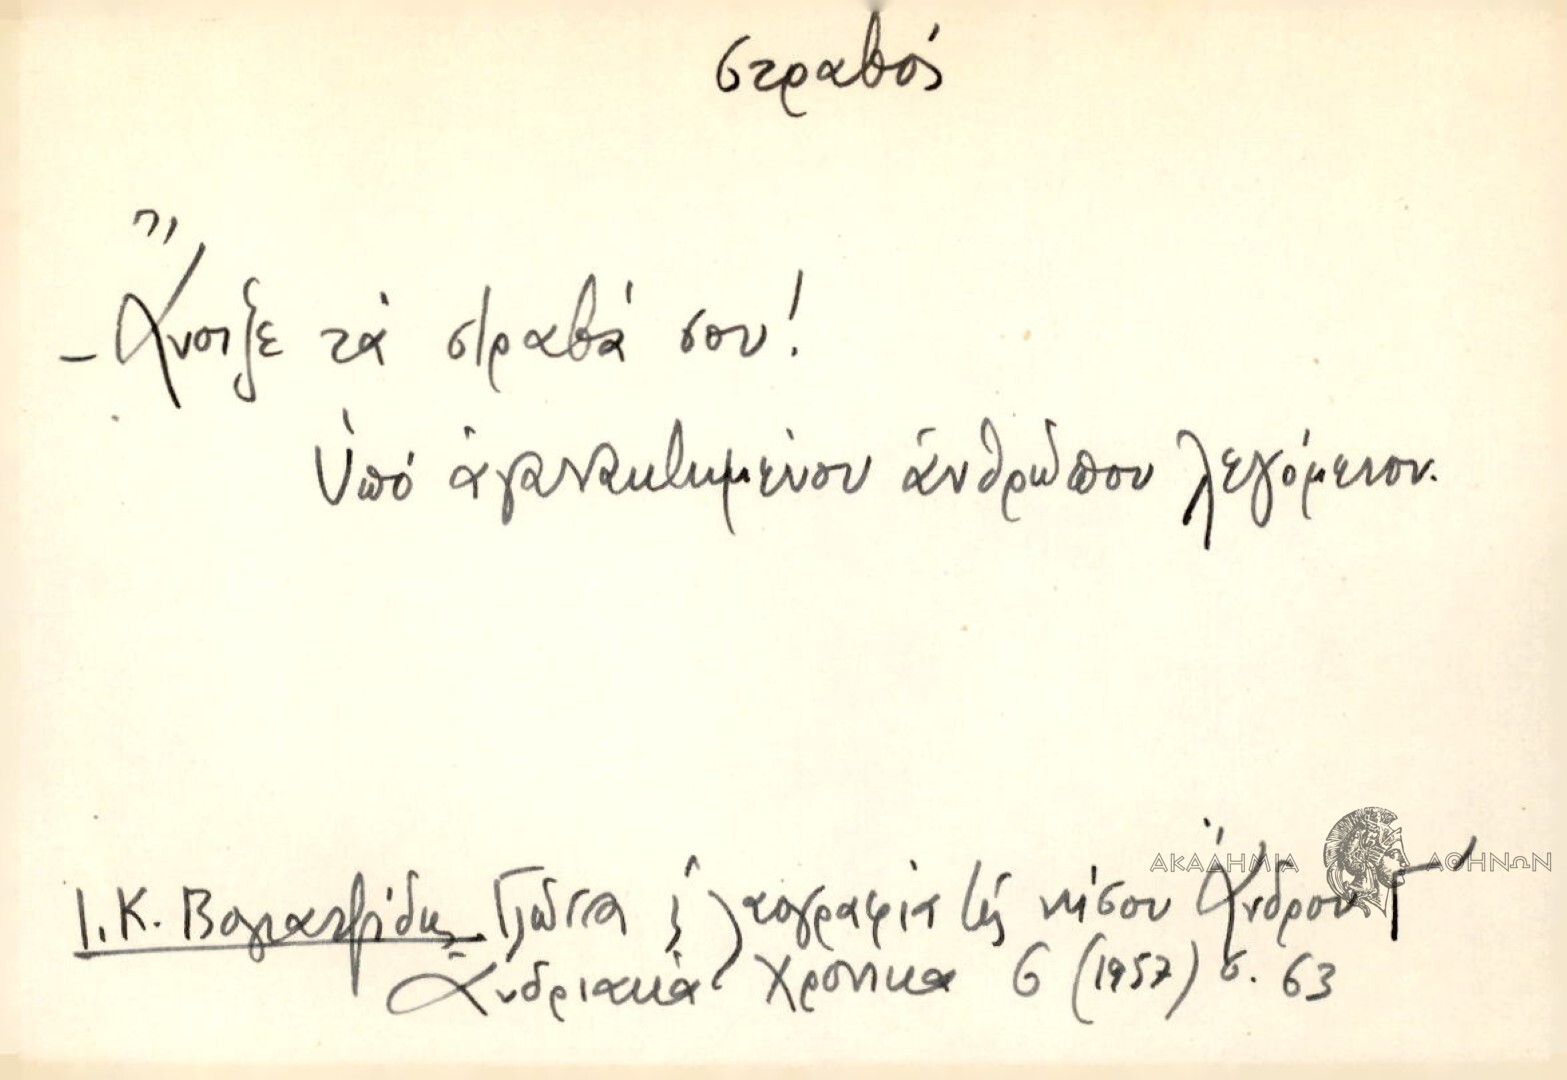 στραβός
- Ἄνοιξε τὰ στραβά σου!
Ὑπό ἀγανακτισμένου ἀνθρώπου λεγόμενον.
ΑΚΑΔΗΜΙΑ ΑΘΗΝΩΝ
Ι. Κ. Βογιατζίδης Γλῶσσα & Λαογραφία τῆς νήσου Ἄνδρου Γ'
Ἀνδριακὰ Χρονικα 6 (1957) σ. 63